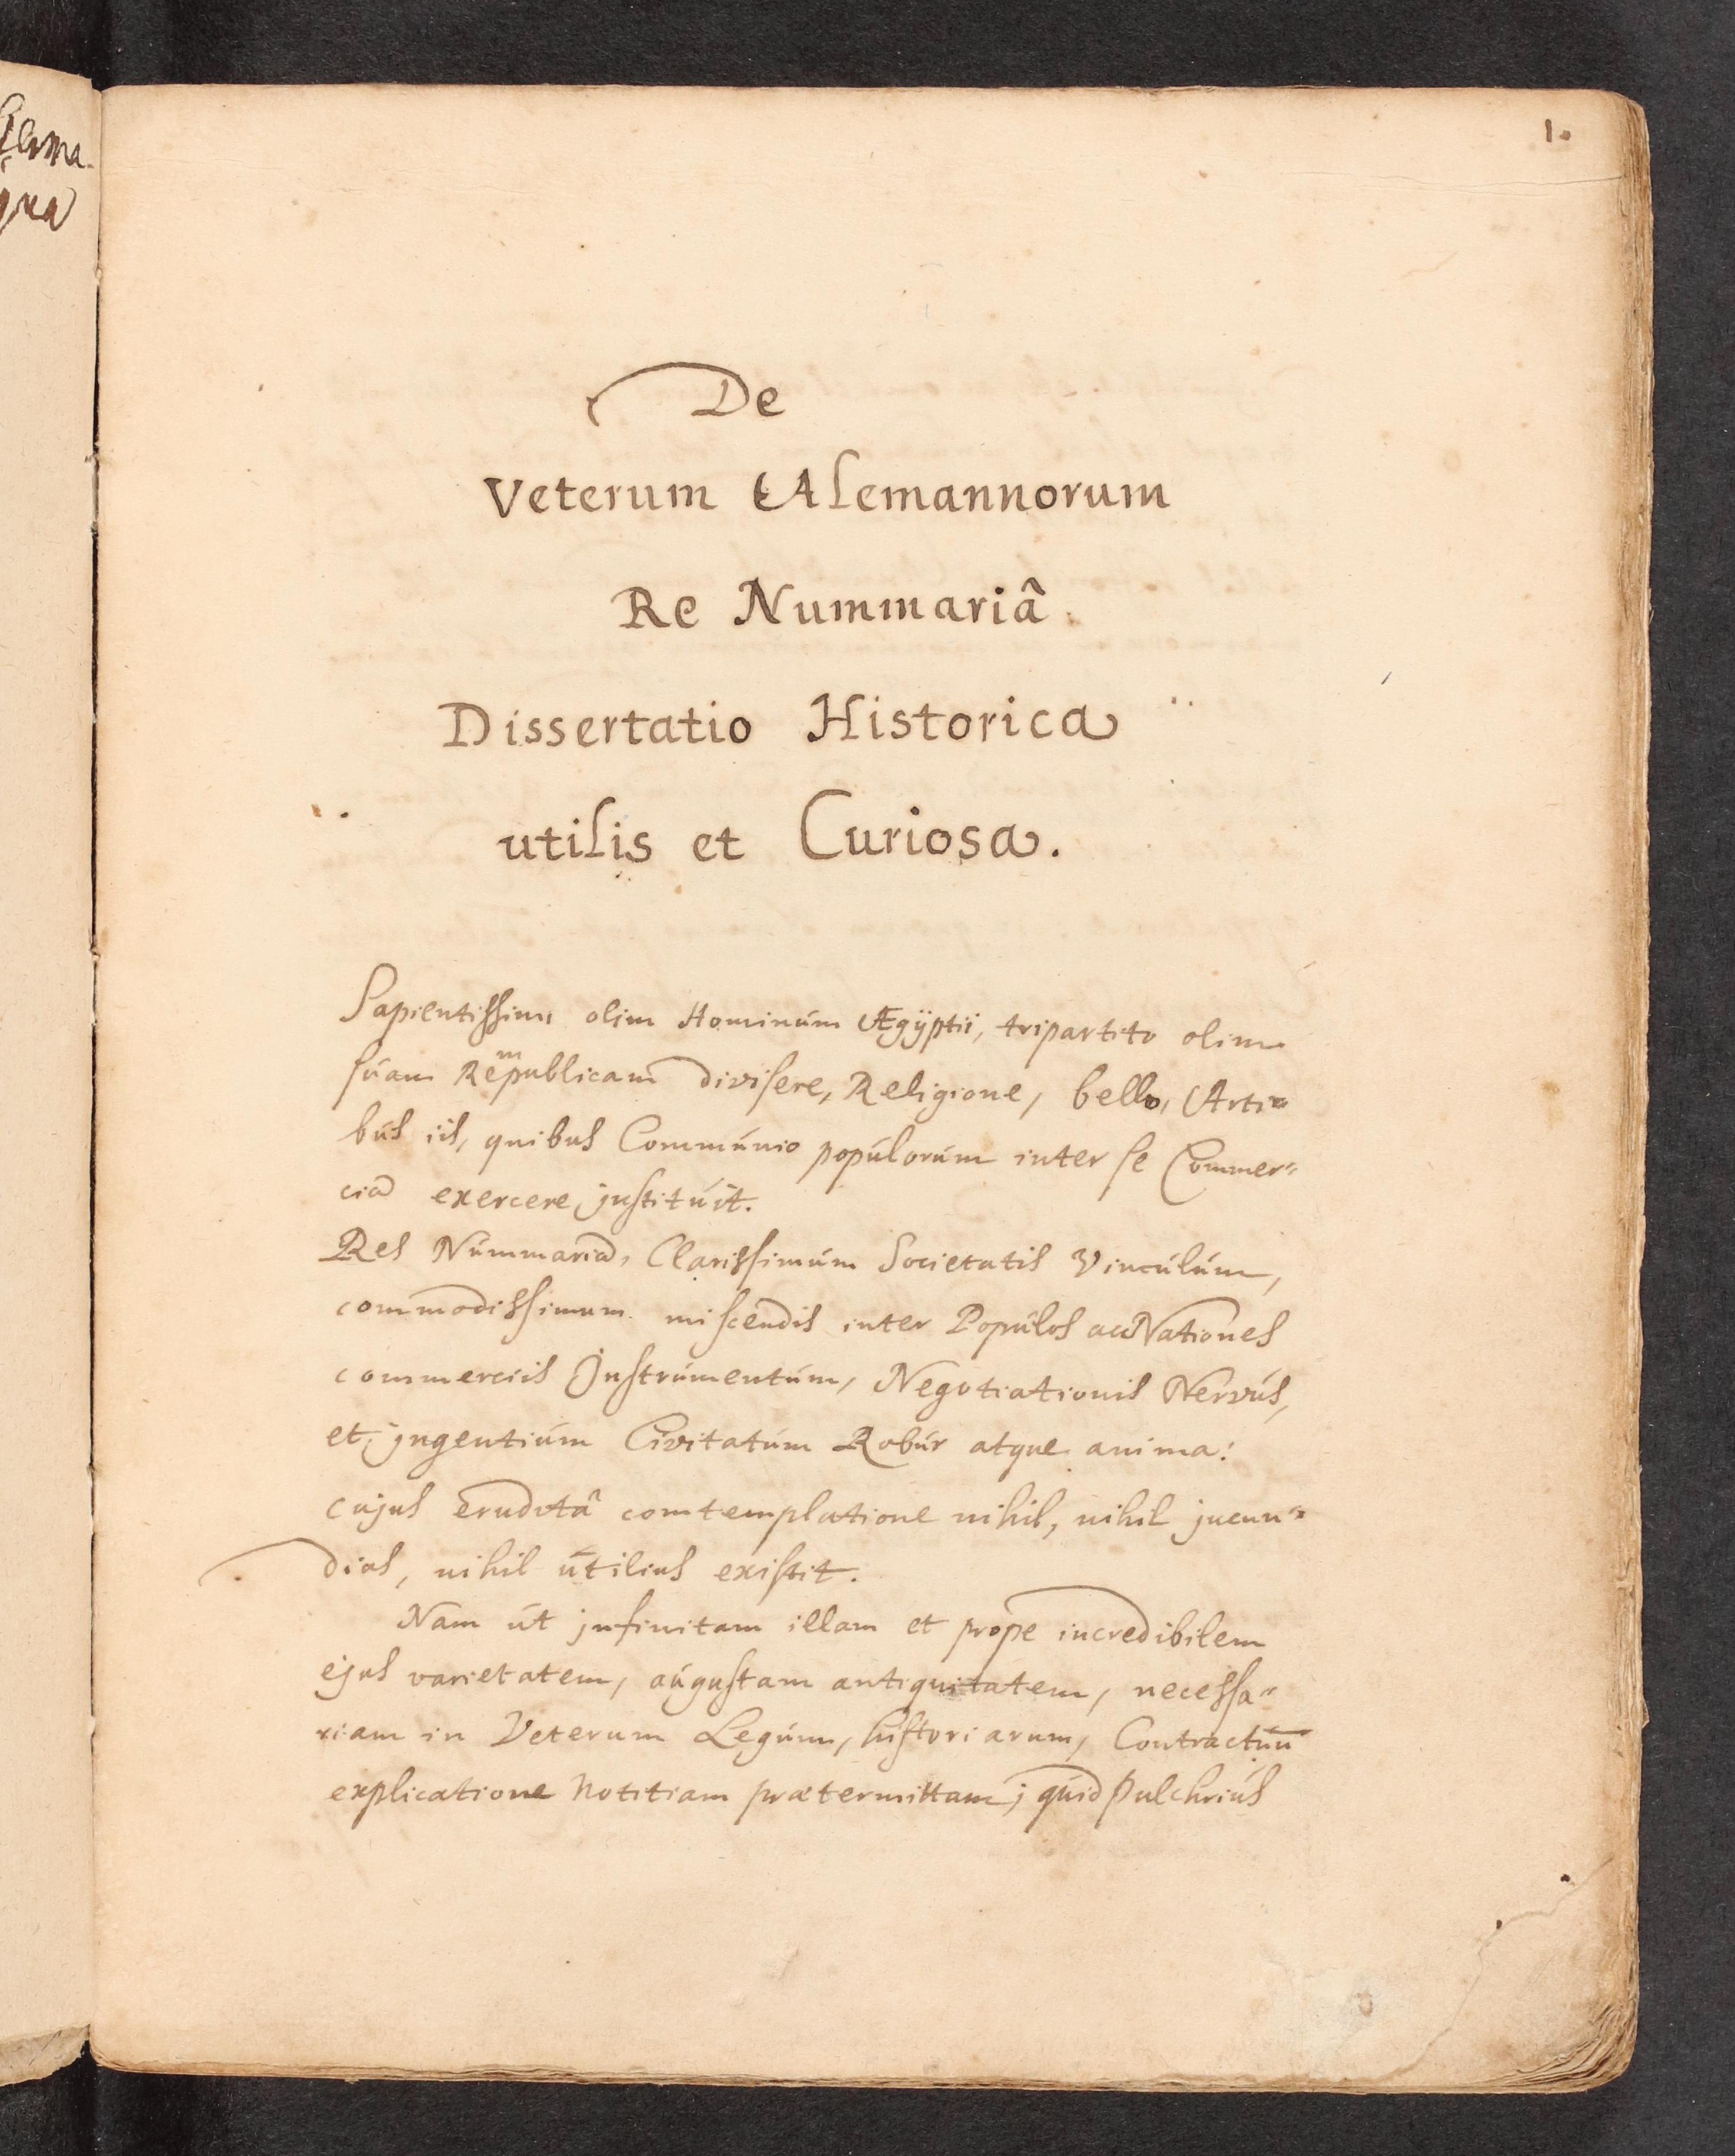 Germa-
qua
1.
De
Veterum Alemannorum
Re Nummariâ
Dissertatio Historica
utilis et Curiosa.
Sapientissimi olim Hominum Ægÿptii, tripartito olim
suam Rempublicam divisere, Religione, bello, Arti=
bus iis, quibus Communio populorum inter se Commer=
cia exercere instituit.
Res Nummaria, Clarissimum Societatis Vinculum,
commodissimum miscendis inter Populos ac Nationes
commerciis Instrumentum, Negotiationis Nervus,
et ingentium Civitatum Robur atque anima:
cujus eruditâ comtemplatione nihil, nihil jucun=
dius, nihil utilius existit.
Nam ut infinitam illam et prope incredibilem
ejus varietatem, augustam antiquitatem, necessa=
riam in Veterum Legum, historiarum, Contractuū
explicatione Notitiam prætermittam; quid pulchrius